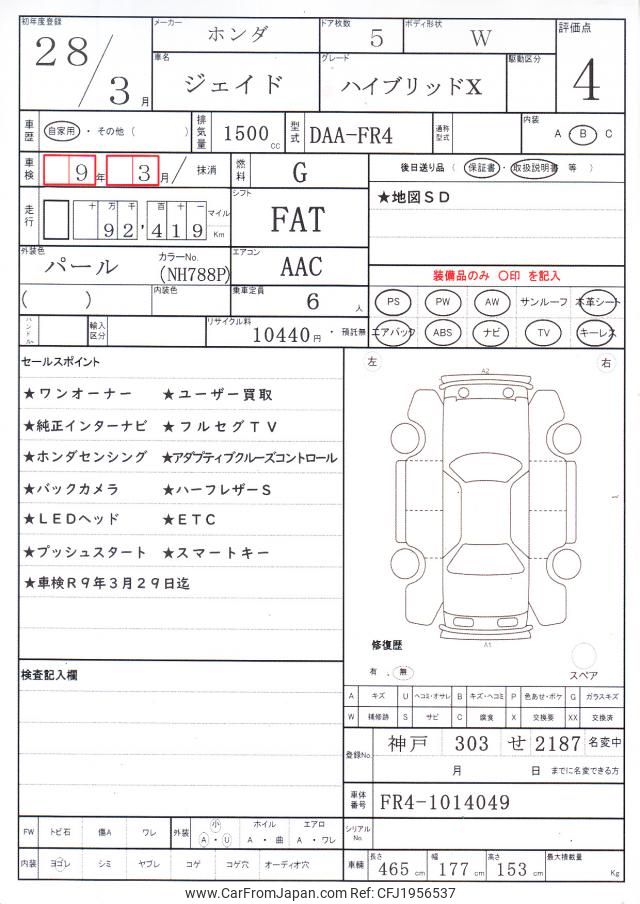 初年度登録 28/3月 メーカー ホンダ ドア枚数 5 ボディ形状 W 評価点 4
車名 ジェイド グレード ハイブリッドX 駆動区分
車歴 自家用・その他（ ） 排気量 1500cc 型式 DAA-FR4 通称型式 内装 A・B・C
車検 9年 3月/ 抹消 燃料 G 後日送り品（保証書・取扱説明書 等 ）
走行 十万千百十一 92,419 マイル Km シフト FAT ★地図SD
外装色 パール カラーNo. (NH788P) エアコン AAC 装備品のみ 〇印 を記入
( ) 内装色 乗車定員 6人 PS PW AW サンルーフ 本革シート
ハンドル 輸入区分 リサイクル料 10440円・預託無 エアバック ABS ナビ TV キーレス
セールスポイント 左 右
A2
★ワンオーナー ★ユーザー買取
★純正インターナビ ★フルセグTV
★ホンダセンシング ★アダプティブクルーズコントロール
★バックカメラ ★ハーフレザーS
★LEDヘッド ★ETC
★プッシュスタート ★スマートキー
★車検R9年3月29日迄
A1
修復歴
有．無 スペア
検査記入欄
A キズ U ヘコミ・オサレ B キズ・ヘコミ P 色あせ・ボケ G ガラスキズ
W 補修跡 S サビ C 腐食 X 交換要 XX 交換済
登録No. 神戸 303 せ 2187 名変中
月 日 までに名変できる方
車体番号 FR4-1014049
シリアルNo.
FW トビ石 傷A ワレ 外装 小 A・U ホイル A・曲 エアロ A・ワレ
内装 ヨゴレ シミ ヤブレ コゲ コゲ穴 オーディオ穴 車輌 長さ 465cm 幅 177cm 高さ 153cm 最大積載量 Kg
www.CarFromJapan.com Ref: CFJ1956537